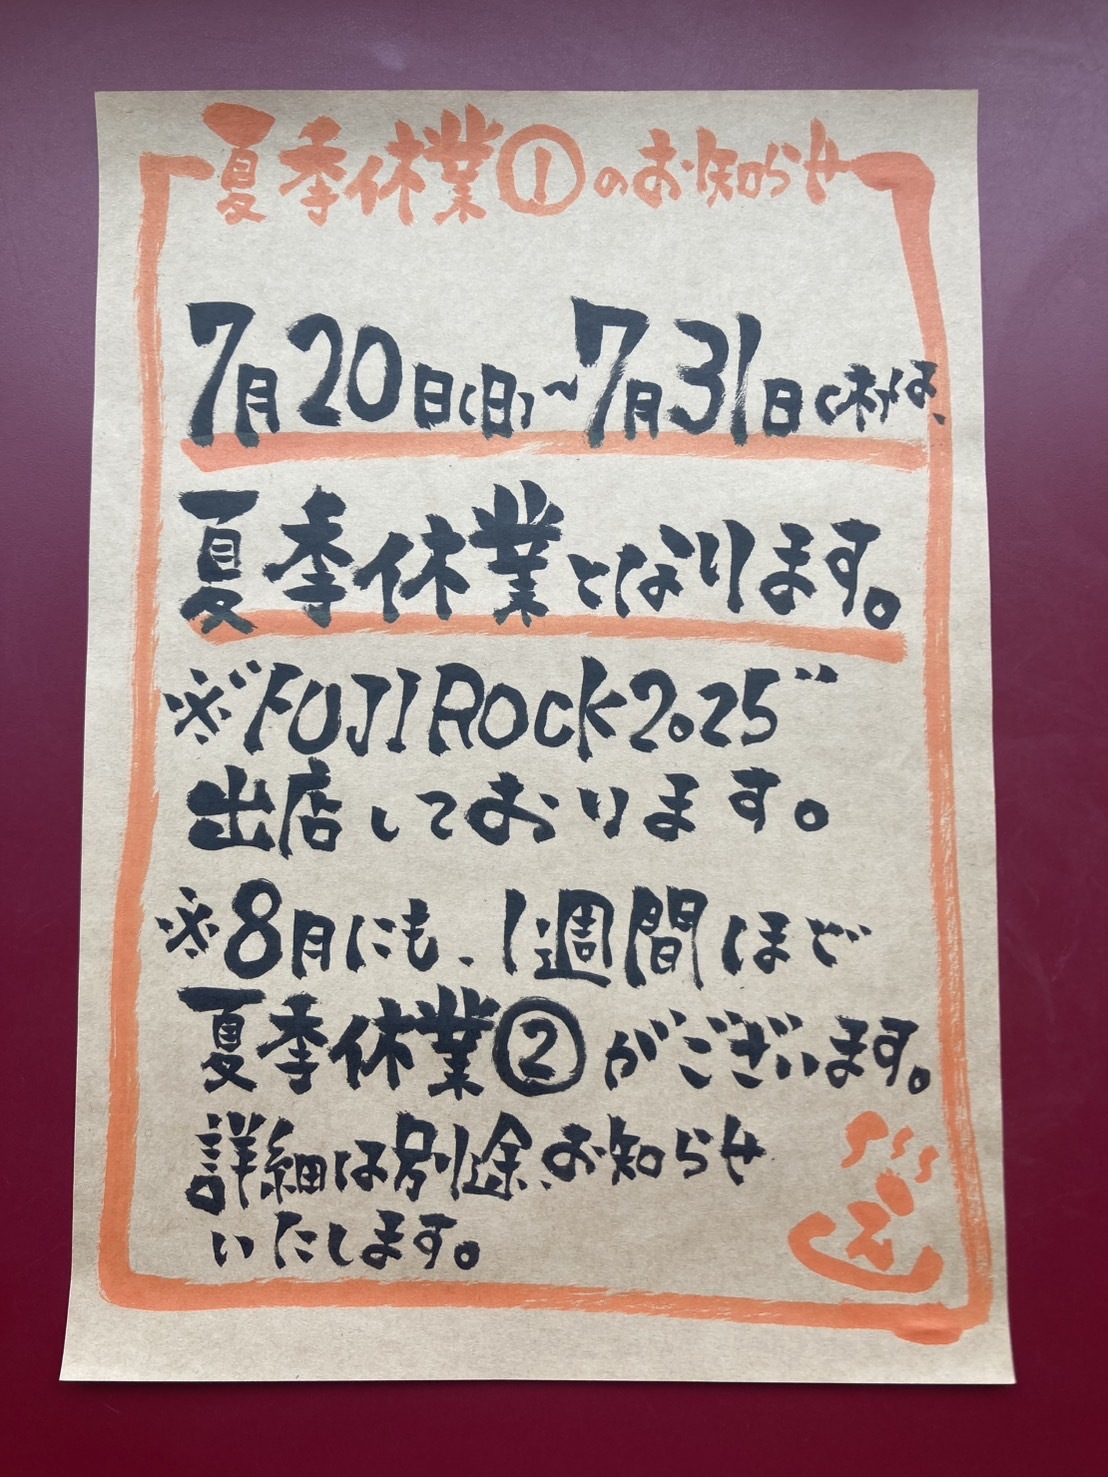 夏季休業①のお知らせ
7月20日(日)~7月31日(木)は、
夏季休業となります。
※"FUJI Rock 2025"
出店しております。
※8月にも、1週間ほど
夏季休業②がございます。
詳細は別途、お知らせ
いたします。